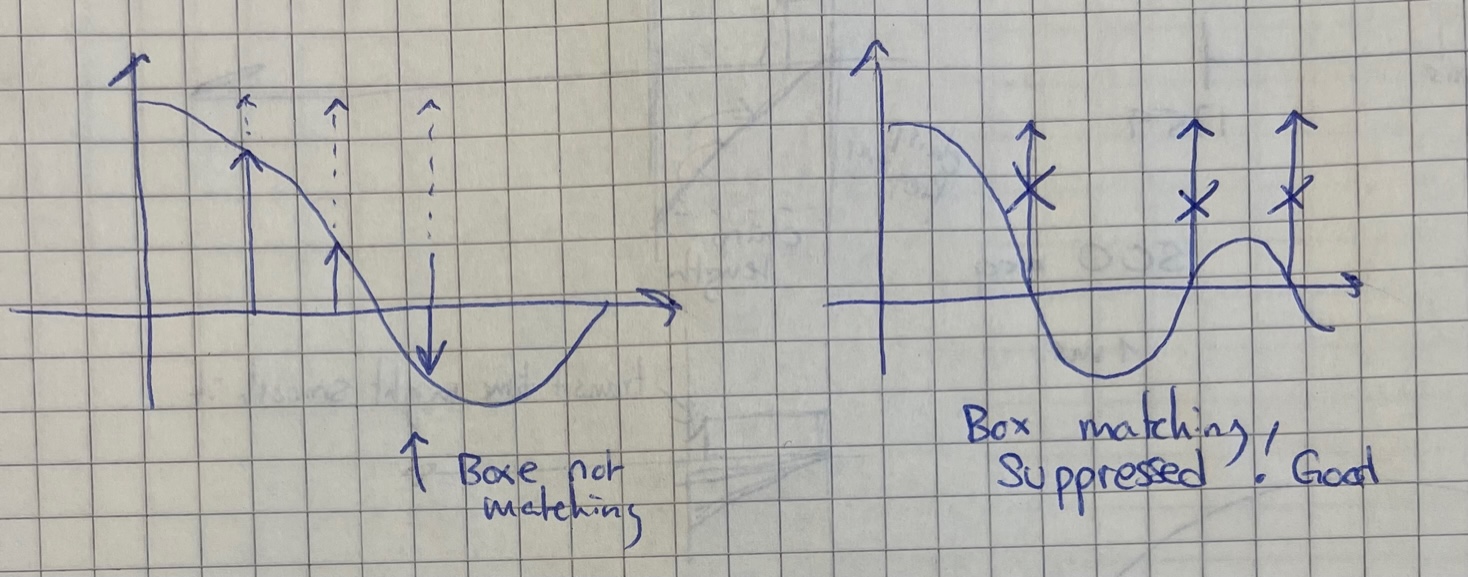 ↑ Boxe not
matching
Box matching,
Suppressed! Good